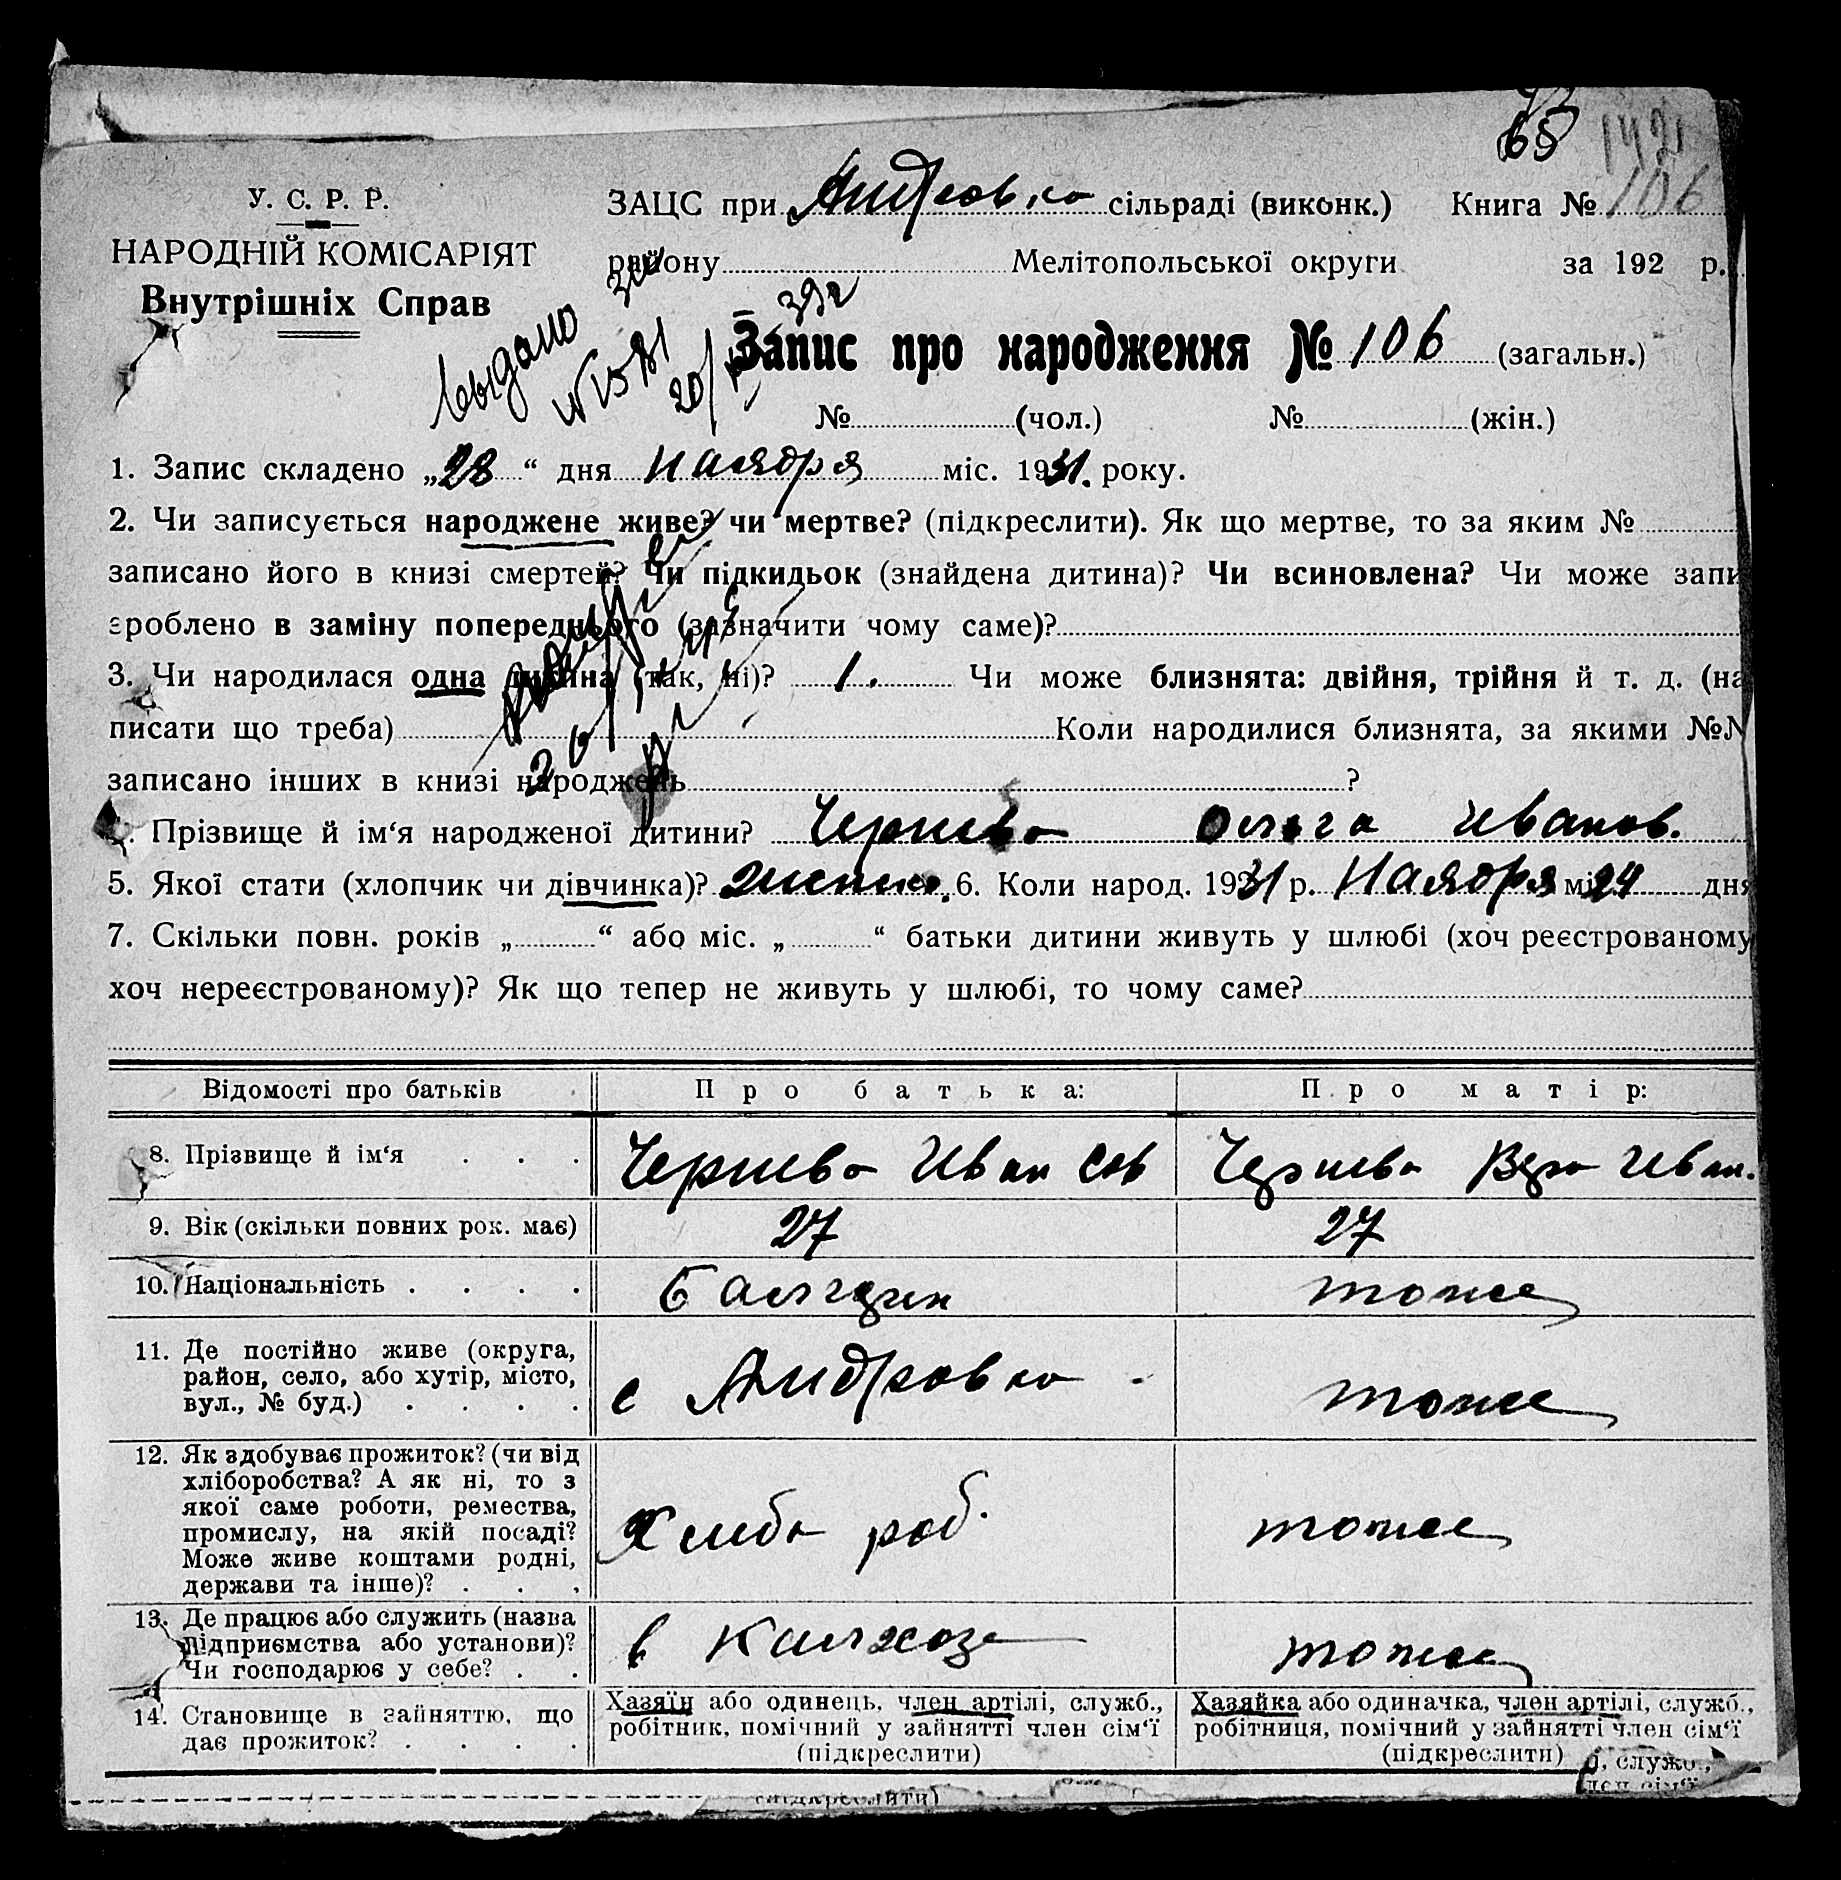 65
1421
У. С. Р. Р.
НАРОДНІЙ КОМІСАРІЯТ
Внутрішніх Справ
ЗАЦС при Андровка сільраді (виконк.) Книга № 106
району Мелітопольської округи за 192 р.
Выдано
39г
Запис про народження № 106 (загальн.)
№ (чол.) № (жін.)
1. Запис складено „28“ дня Наября міс. 1931. року.
2. Чи записується народжене живе? чи мертве? (підкреслити). Як що мертве, то за яким №
записано його в книзі смертей? Чи підкидьок (знайдена дитина)? Чи всиновлена? Чи може запи
зроблено в заміну попереднього (зазначити чому саме)?
3. Чи народилася одна дитина (так, ні)? 1. Чи може близнята: двійня, трійня й т. д. (на
писати що треба) Коли народилися близнята, за якими №№
записано інших в книзі народжень ?
Прізвище й ім‘я народженої дитини? Чернева Ольга Иванов.
5. Якої стати (хлопчик чи дівчинка)? 6. Коли народ. 1931 р. Наября міс 24 дня
7. Скільки повн. років „ “ або міс. „ “ батьки дитини живуть у шлюбі (хоч реєстрованому
хоч нереєстрованому)? Як що тепер не живуть у шлюбі, то чому саме?
Відомості про батьків Про батька: Про матір:
8. Прізвище й ім‘я Чернева Иван Сав Чернева Вера Иван.
9. Вік (скільки повних рок. має) 27 27
10. Національність Балгарин тоже
11. Де постійно живе (округа,
район, село, або хутір, місто,
вул., № буд.) с Андровка тоже
12. Як здобуває прожиток? (чи від
хліборобства? А як ні, то з
якої саме роботи, ремества,
промислу, на якій посаді?
Може живе коштами родні,
держави та інше)? Хлебо роб. тоже
13. Де працює або служить (назва
підприємства або установи)?
Чи господарює у себе? в Калхозе тоже
14. Становище в зайняттю, що
дає прожиток?
Хазяїн або одинець, член артілі, служб.,
робітник, помічний у зайнятті член сім‘ї
(підкреслити)
Хазяйка або одиначка, член артілі, служб.,
робітниця, помічний у зайнятті член сім‘ї
(підкреслити)
, служб.,
(підкреслити)